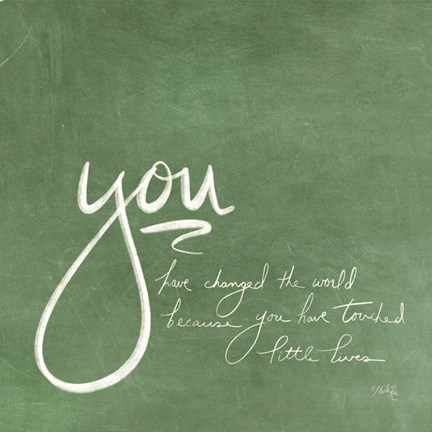 you
have changed the world
because you have touched
little lives